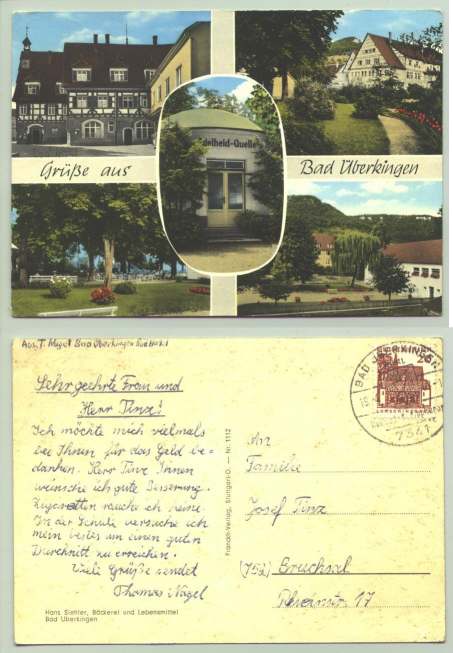 Adelheid-Quelle
Grüße aus
Bad Überkingen
Abs. T. Nagel Bad Überkingen
Sehr geehrte Frau und
Herr Tinz!
Ich möchte mich vielmals
bei Ihnen für das Geld be-
danken. Herr Tinz Ihnen
wünsche ich gute Besserung.
Zigaretten rauche ich keine.
In der Schule versuche ich
mein bestes um einen guten
Durchnitt zu erreichen.
Viele Grüße sendet
Thomas Nagel
Hans Siehler, Bäckerei und Lebensmittel
Bad Überkingen
Franckh-Verlag, Stuttgart-O. — Nr. 1112
BAD ÜBERKINGEN
7341
An
Familie
Josef Tinz
(752) Bruchsal
Rheinstr. 17